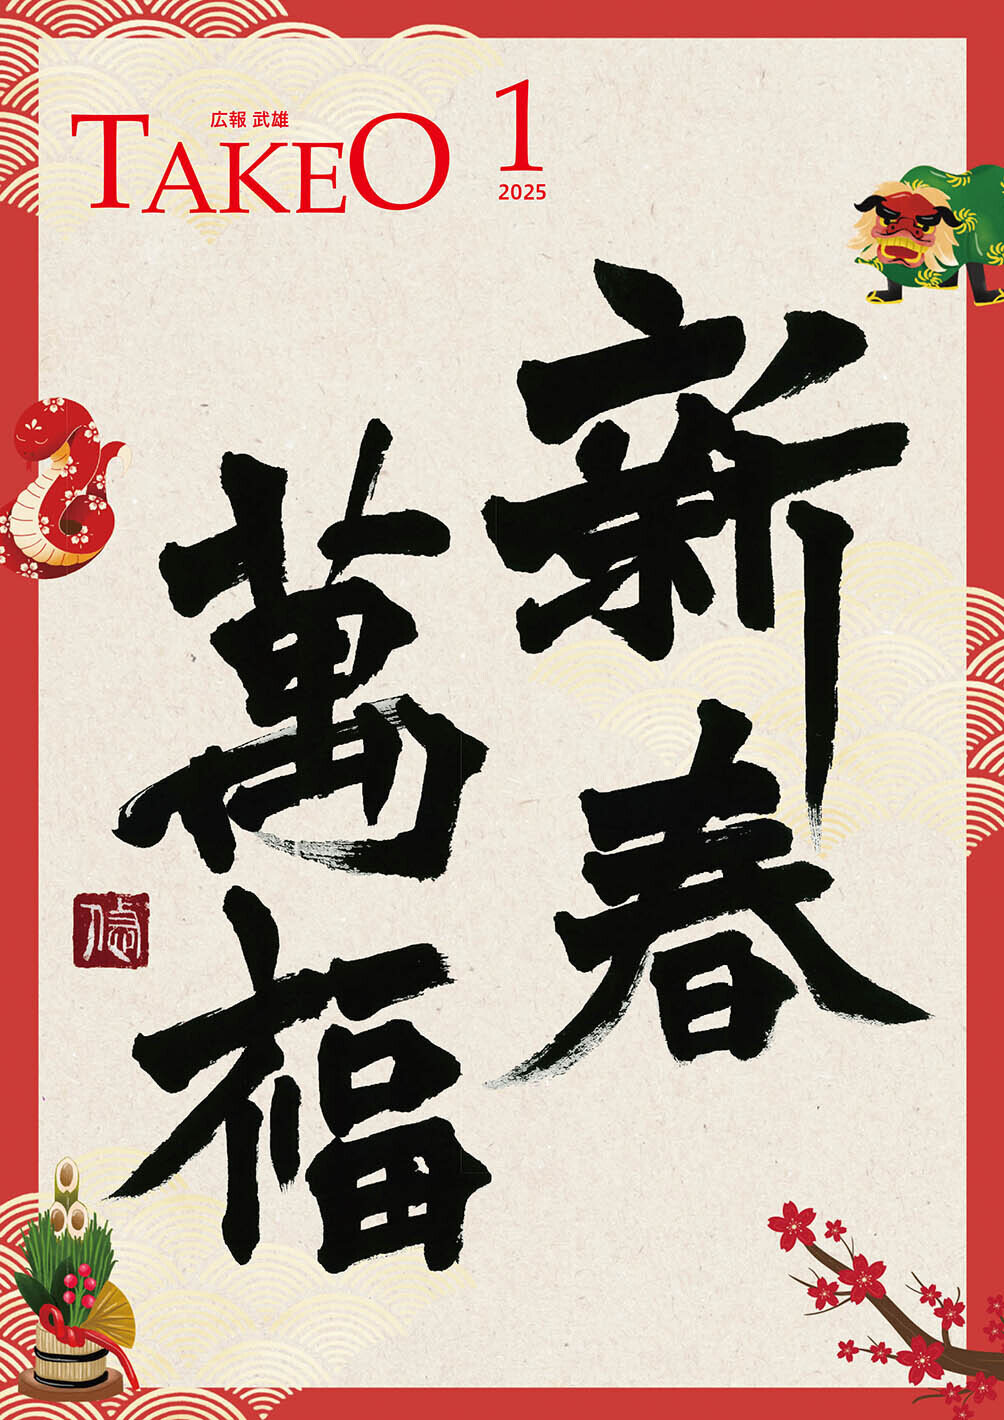 広報 武雄
TAKEO
1
2025
新春
萬福